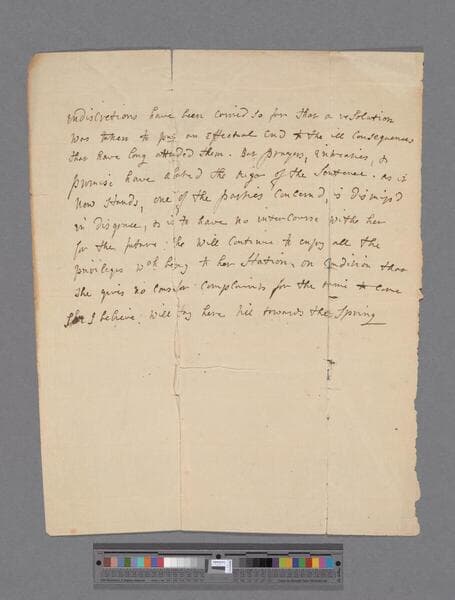 indiscretions have been carried so far that a resolution
was taken to put an effectual end to the ill Consequences
that have long attended them. But Prayers, Entreaties, &
promises have abated the rigor of the Sentence. As it
Now Stands, one of the parties Concern'd, is dismiss'd
in disgrace, & is to have no intercourse with her
for the future: She will continue to enjoy all the
privileges wch belong to her Station, on Condition that
she gives no cause for Complaints for the time to come
She I believe will stay here till towards the Spring